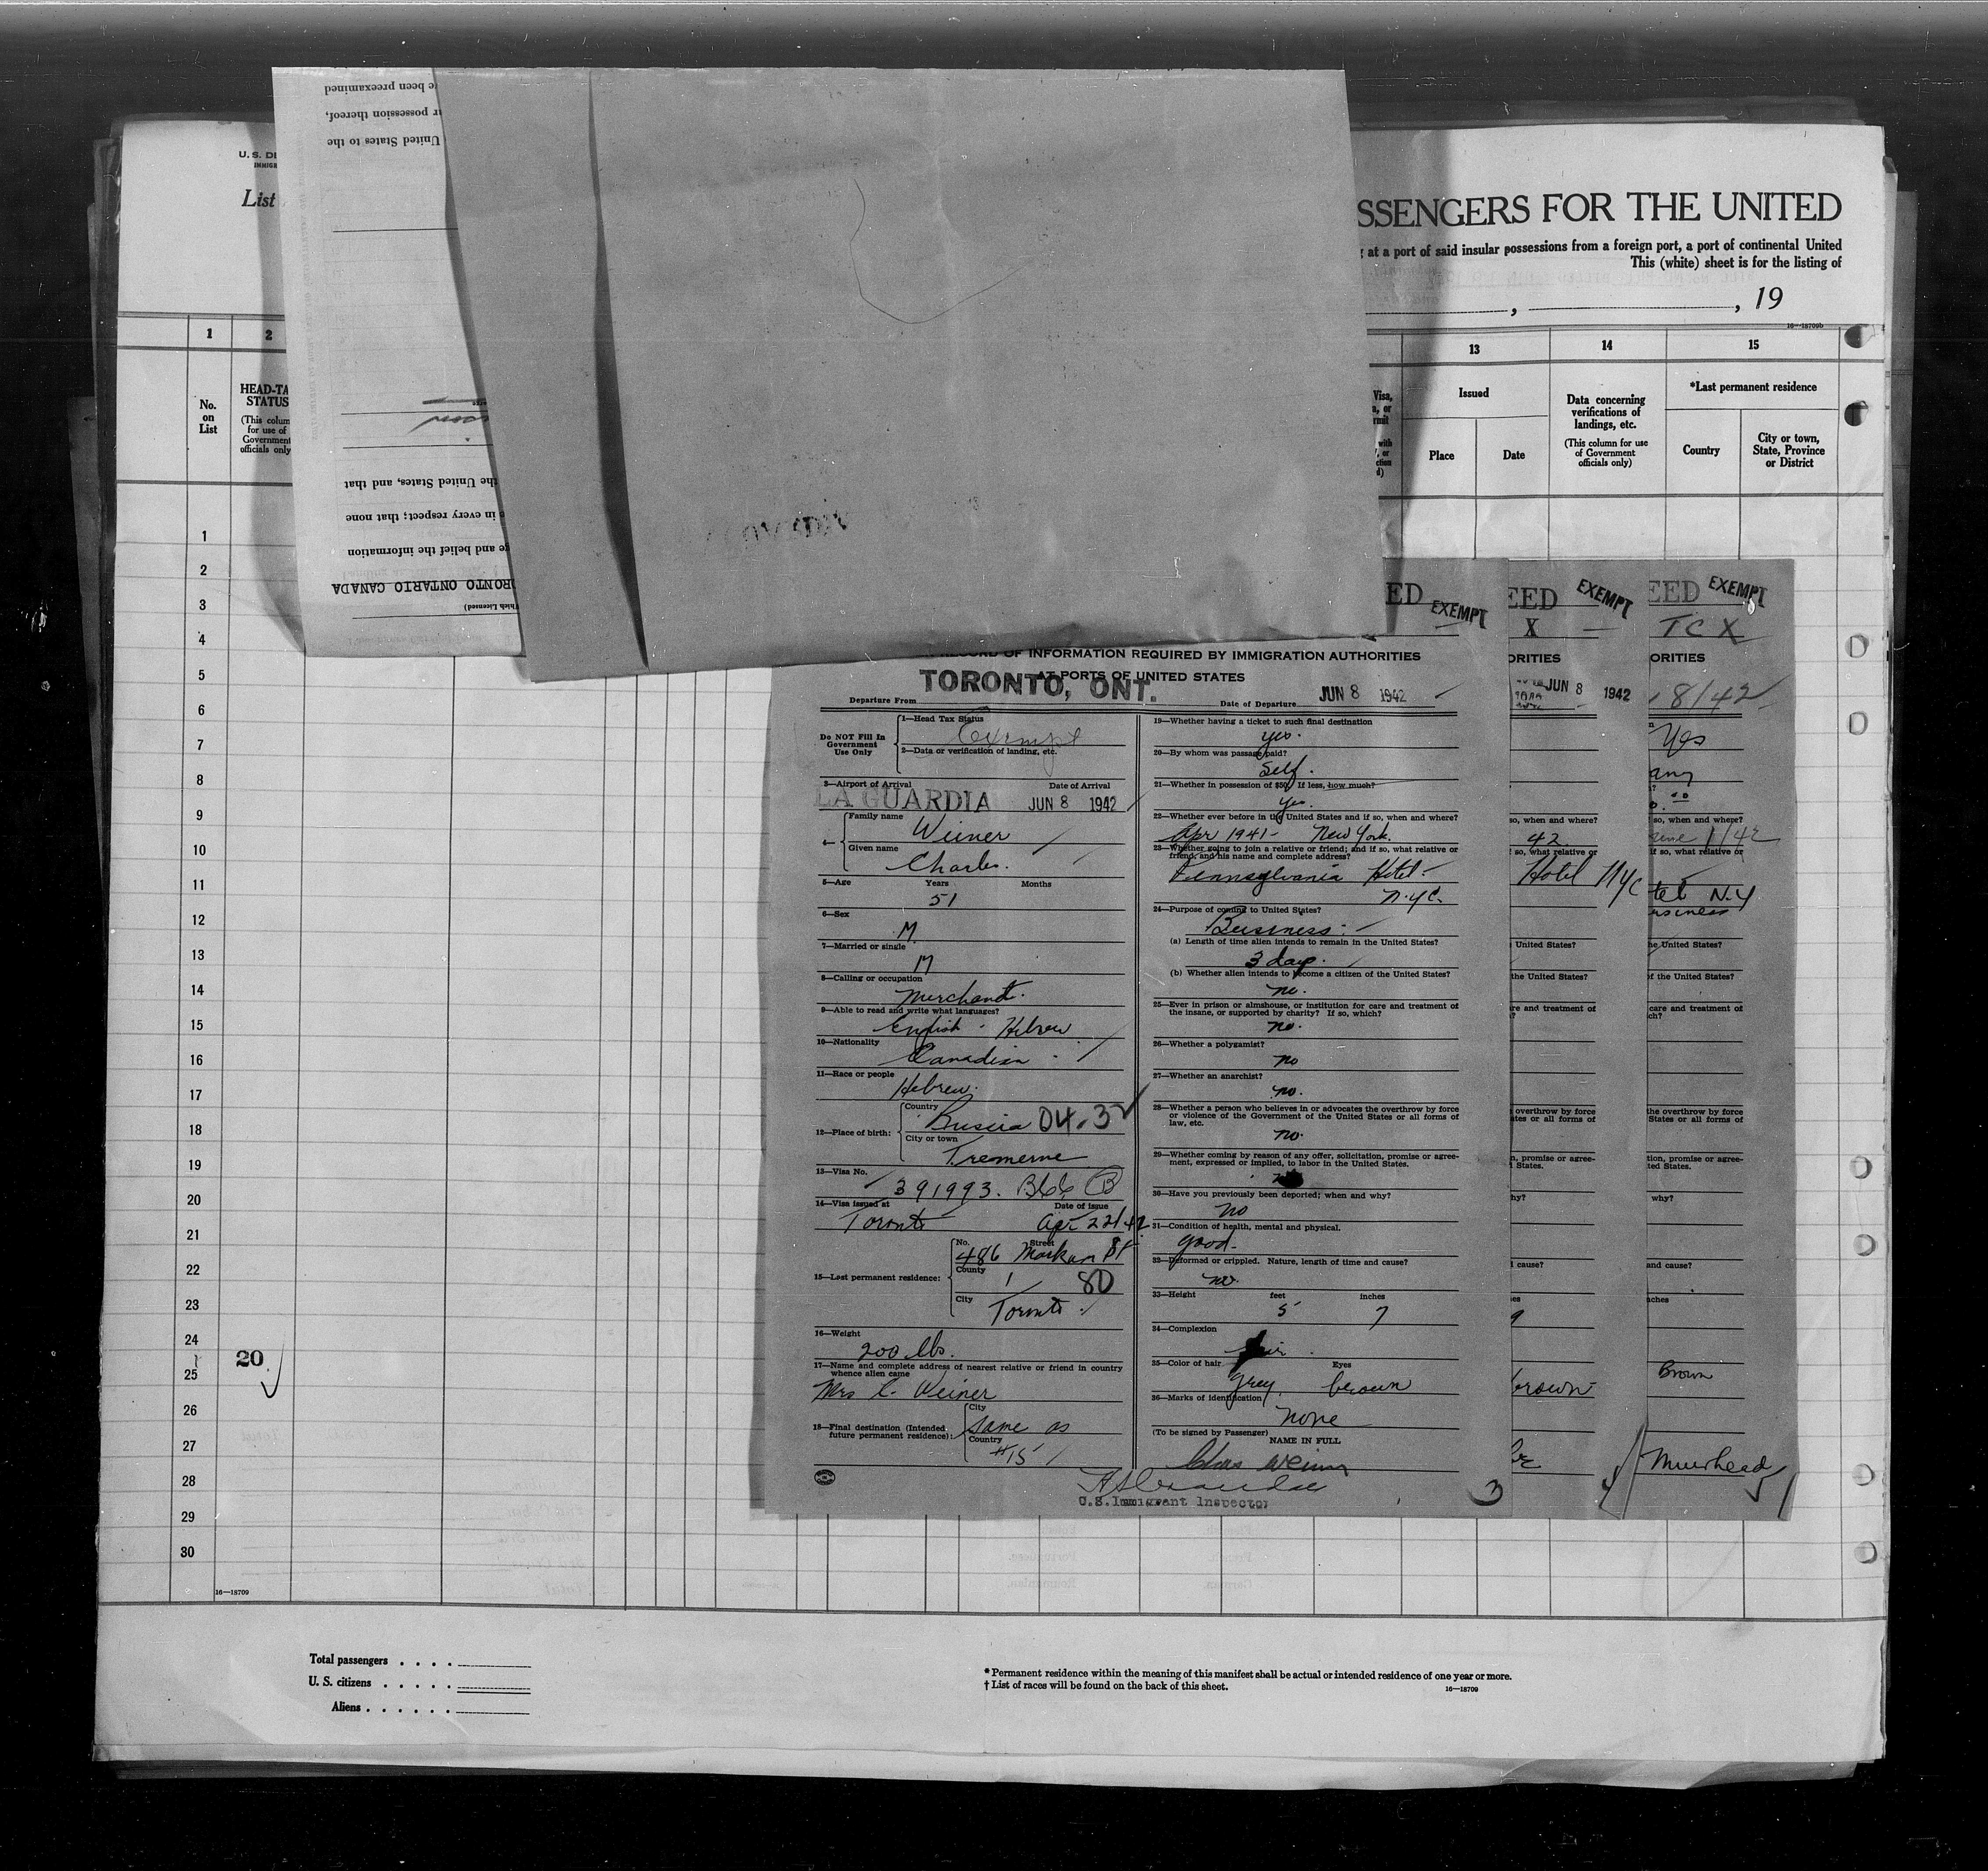 U. S. DE
IMMIGR
List
SSENGERS FOR THE UNITED
at a port of said insular possessions from a foreign port, a port of continental United
This (white) sheet is for the listing of
, , 19
16—18709b
1 2 13 14 15
No. on List
HEAD-TA
STATUS
(This colum
for use of
Government
officials only
Visa,
Issued
Place Date
Data concerning
verifications of
landings, etc.
(This column for use
of Government
officials only)
*Last permanent residence
Country
City or town,
State, Province
or District
e been preexamined
r possession thereof,
United States to the
the United States, and that
in every respect; that none
ge and belief the information
RONTO ONTARIO CANADA
which Licensed)
1
2
3
4
5
6
7
8
9
10
11
12
13
14
15
16
17
18
19
20
21
22
23
24
20
25
26
27
28
29
30
16—18709
ED EXEMPT
RECORD OF INFORMATION REQUIRED BY IMMIGRATION AUTHORITIES
AT PORTS OF UNITED STATES
Departure From TORONTO, ONT. Date of Departure JUN 8 1942
Do NOT Fill In
Government
Use Only
1—Head Tax Status
Exempt
2—Data or verification of landing, etc.
3—Airport of Arrival Date of Arrival
LA GUARDIA JUN 8 1942
4— Family name
Weiner
Given name
Charles.
5—Age Years Months
51
6—Sex
M
7—Married or single
M
8—Calling or occupation
Merchant.
9—Able to read and write what languages?
English - Hebrew
10—Nationality
Canadian
11—Race or people
Hebrew.
12—Place of birth:
Country
Russia 04-3
City or town
Tremerne
13—Visa No.
391993. B66 B
14—Visa issued at Date of issue
Toronto Apr 22/42
15—Last permanent residence:
No. Street
486 Markam St
County
1 80
City
Toronto
16—Weight
200 lbs.
17—Name and complete address of nearest relative or friend in country
whence alien came
Mrs C. Weiner
18—Final destination (Intended
future permanent residence):
City
same as
Country
#15
19—Whether having a ticket to such final destination
yes.
20—By whom was passage paid?
Self.
21—Whether in possession of $50, If less, how much?
yes.
22—Whether ever before in the United States and if so, when and where?
Apr 1941- New York.
23—Whether going to join a relative or friend; and if so, what relative or
friend, and his name and complete address?
Pennsylvania Hotel-
N.Y.C.
24—Purpose of coming to United States?
Business
(a) Length of time alien intends to remain in the United States?
3 days.
(b) Whether alien intends to become a citizen of the United States?
no.
25—Ever in prison or almshouse, or institution for care and treatment of
the insane, or supported by charity? If so, which?
no.
26—Whether a polygamist?
no
27—Whether an anarchist?
no.
28—Whether a person who believes in or advocates the overthrow by force
or violence of the Government of the United States or all forms of
law, etc.
no.
29—Whether coming by reason of any offer, solicitation, promise or agree-
ment, expressed or implied, to labor in the United States.
30—Have you previously been deported; when and why?
no
31—Condition of health, mental and physical.
good.
32—Deformed or crippled. Nature, length of time and cause?
no.
33—Height feet inches
5 7
34—Complexion
35—Color of hair Eyes
grey. brown
36—Marks of identification
none
(To be signed by Passenger)
NAME IN FULL
Chas Weiner
U.S. Immigrant Inspector
3
EED EXEMPT
X
ORITIES
JUN 8 1942
so, when and where?
42
if so, what relative or
Hotel NYC
United States?
the United States?
re and treatment of
overthrow by force
tes or all forms of
n, promise or agree-
States.
hy?
cause?
es
9
brown
EED EXEMPT
TC X
ORITIES
8/42
Yes
any
so, when and where?
June 1/42
if so, what relative or
tel N.Y
usiness
he United States?
of the United States?
care and treatment of
ch?
the overthrow by force
States or all forms of
tion, promise or agree-
ted States.
why?
and cause?
nches
Brown
Muirhead
Total passengers . . . .
U. S. citizens . . . . .
Aliens . . . . . .
* Permanent residence within the meaning of this manifest shall be actual or intended residence of one year or more.
† List of races will be found on the back of this sheet.
16—18709